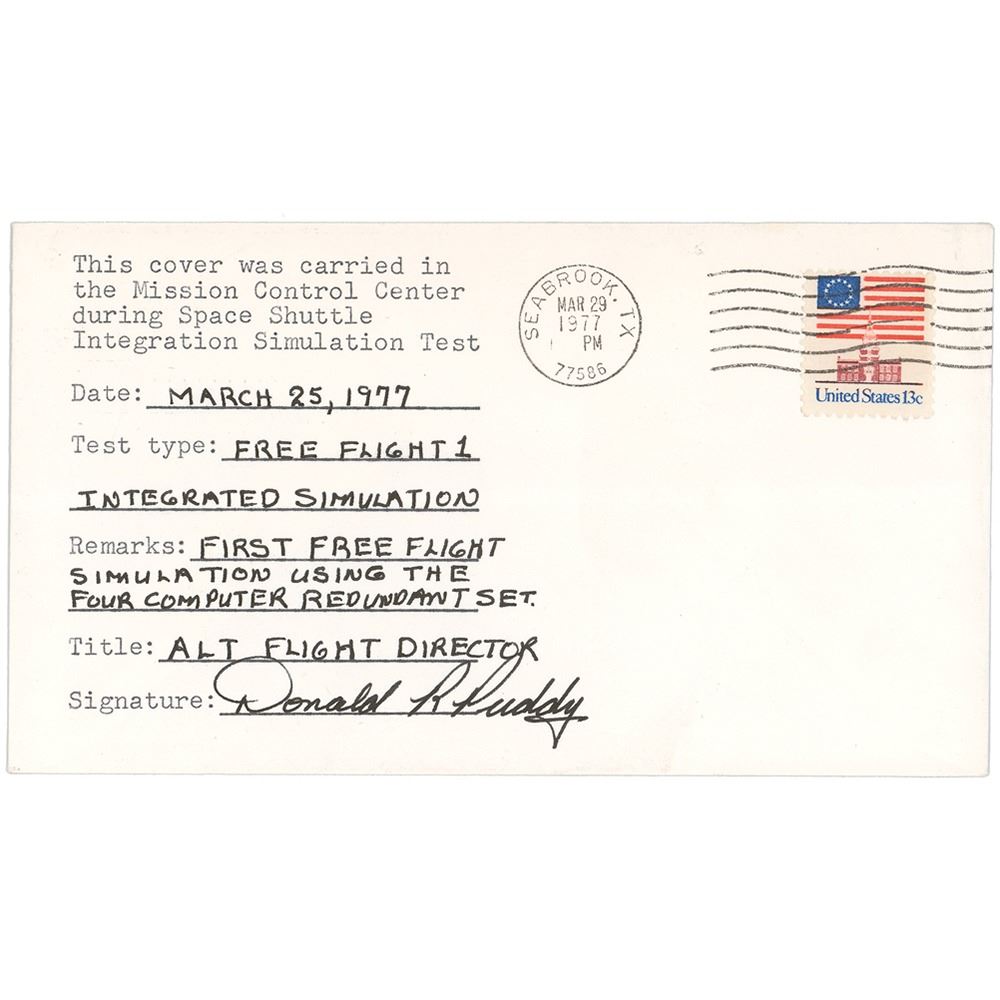 This cover was carried in
the Mission Control Center
during Space Shuttle
Integration Simulation Test
Date: MARCH 25, 1977
Test type: FREE FLIGHT 1
INTEGRATED SIMULATION
Remarks: FIRST FREE FLIGHT
SIMULATION USING THE
FOUR COMPUTER REDUNDANT SET.
Title: ALT FLIGHT DIRECTOR
Signature: Donald R Puddy
SEABROOK, TX
MAR 29
1977
PM
77586
United States 13c